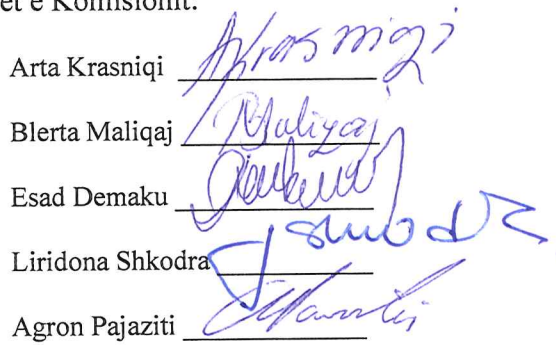 et e Komisionit:
Arta Krasniqi AKrasniqi
Blerta Maliqaj BMaliqaj
Esad Demaku
Liridona Shkodra
Agron Pajaziti